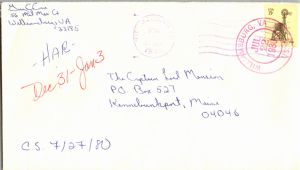 56 Mill Mar Ct
Williamsburg, VA
23185
-HAR-
Dec 31-Jan 3
The Captain Lord Mansion
P.O. Box 527
Kennebunkport, Maine
04046
C.S. 7/27/80
WILLIAMSBURG, VA
JUL